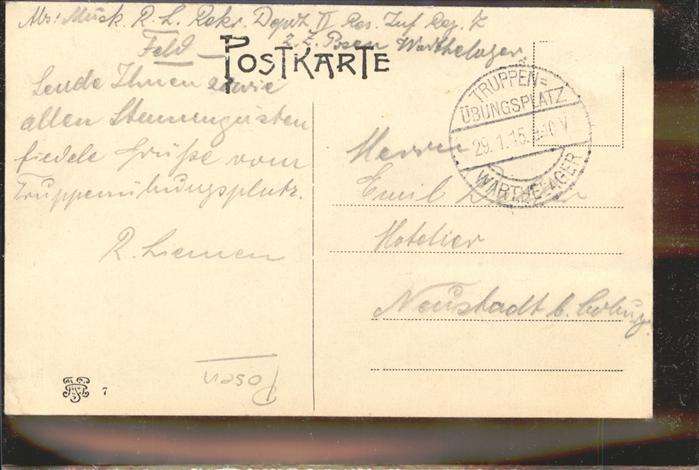 Abs: Musk. R. L. Rekr. Depot II Res. Inf. Reg. 7
Feld
z. Z. Posen Warthelager
POSTKARTE
Sende Ihnen sowie
allen Stammgästen
fidele Grüße vom
Truppenübungsplatz.
R. Liemen
TRUPPEN=
ÜBUNGSPLATZ
29.1.15.
WARTHELAGER
Herren
Emil
Hotelier
Neustadt b. Coburg.
Posen
7